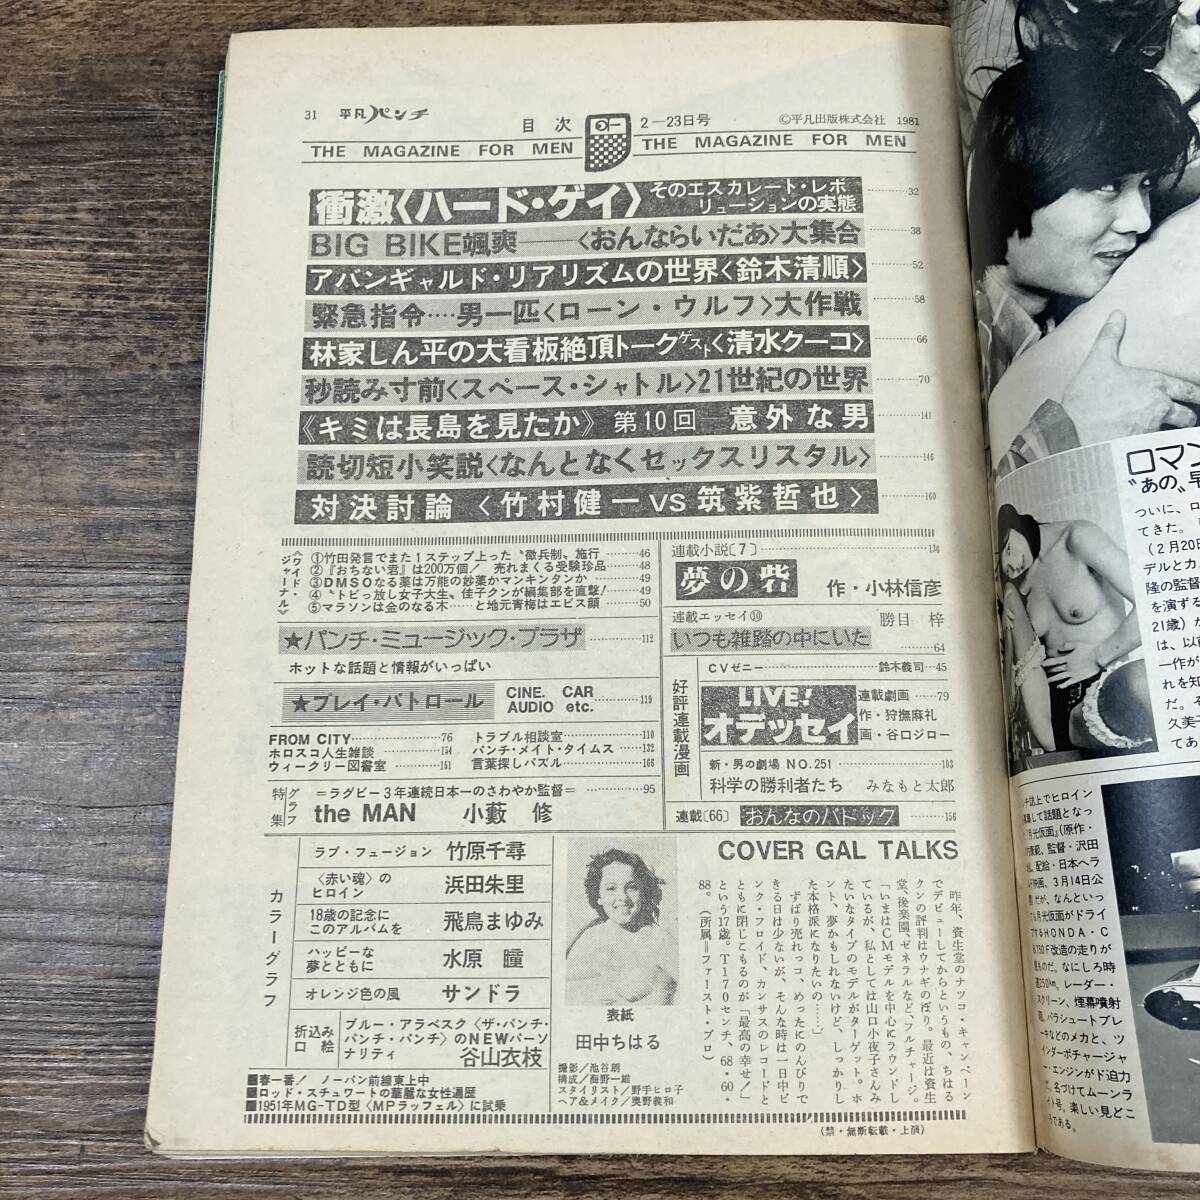 31 平凡パンチ
目次
2―23日号
©平凡出版株式会社 1981
THE MAGAZINE FOR MEN
THE MAGAZINE FOR MEN
衝激〈ハード・ゲイ〉そのエスカレート・レボ
リューションの実態……32
BIG BIKE颯爽――〈おんならいだあ〉大集合……38
アバンギャルド・リアリズムの世界〈鈴木清順〉……52
緊急指令‥‥男一匹〈ローン・ウルフ〉大作戦……58
林家しん平の大看板絶頂トークゲスト〈清水クーコ〉……66
秒読み寸前〈スペース・シャトル〉21世紀の世界……70
《キミは長島を見たか》第10回 意外な男……141
読切短小笑説〈なんとなくセックスリスタル〉……146
対決討論〈竹村健一VS筑紫哲也〉……160
〈ワイド・ジャーナル〉
①竹田発言でまた1ステップ上った〝徴兵制〟施行……46
②『おちない君』は200万個! 売れまくる受験珍品……48
③DMSOなる薬は万能の妙薬かマンキンタンか……49
④〝トビっ放し女子大生、佳子クンが編集部を直撃!……49
⑤マラソンは金のなる木……と地元青梅はエビス顔……50
★パンチ・ミュージック・プラザ……112
ホットな話題と情報がいっぱい
★プレイ・パトロール CINE. CAR
AUDIO etc.……119
FROM CITY……76
ホロスコ人生雑談……154
ウィークリー図書室……161
トラブル相談室……110
パンチ・メイト・タイムス……132
言葉探しパズル……166
特集
グラフ
=ラグビー3年連続日本一のさわやか監督=……95
the MAN 小藪 修
連載小説〔7〕……134
夢の砦 作・小林信彦
連載エッセイ⑩ 勝目 梓
いつも雑踏の中にいた……64
好評連載漫画
CVゼニー……鈴木義司…45
LIVE!
オデッセイ
連載劇画……79
作・狩撫麻礼
画・谷口ジロー
新・男の劇場 NO.251……103
科学の勝利者たち みなもと太郎
連載〔66〕おんなのパドック……156
カラーグラフ
ラブ・フュージョン 竹原千尋
〈赤い魂〉の
ヒロイン 浜田朱里
18歳の記念に
このアルバムを 飛鳥まゆみ
ハッピーな
夢とともに 水原 瞳
オレンジ色の風 サンドラ
折込み
口絵
ブルー・アラベスク〈ザ・パンチ・
パンチ・パンチ〉のNEWパーソ
ナリティ 谷山衣枝
■春一番! ノーパン前線東上中
■ロッド・スチュワートの華麗な女性遍歴
■1951年MG-TD型〈MPラッフェル〉に試乗
表紙
田中ちはる
撮影/池谷朗
構成/海野一雄
スタイリスト/野手ヒロ子
ヘア&メイク/奥野義和
COVER GAL TALKS
昨年、資生堂のナツコ・キャンペーン
でデビューしてからというもの、ちはる
クンの評判はウナギのぼり。最近は資生
堂、後楽園、ゼネラルなど、フルチャージ。
「いまはCMモデルを中心にラウンドし
ているが、私としては山口小夜子さんみ
たいなタイプのモデルがターゲット。ホ
ント、夢かもしれないけど、しっかりし
た本格派になりたいの……」
ずばり売れっコ、めったにのんびりで
きる日は少ないが、そんな時は一日中ピ
ンク・フロイド、カンサスのレコードと
ともに閉じこもるのが「最高の幸せ!」
という17歳。T170センチ、68・60・
88。(所属=ファースト・プロ)
(禁・無断転載・上演)
ロマン
〝あの〟早
ついに、ロ
てきた。
(2月20日
デルとカメ
隆の監督
を演ずる
21歳)が
は、以前
一作が
れを知
だ。そ
久美子
であ
ンチ誌上でヒロイン
集して話題となっ
月光仮面』(原作・
康範、監督・沢田
配給・日本ヘラ
映画、3月14日公
だが、なんといっ
月光仮面がドライ
するHONDA・C
B750F改造の走りが
ものだ。なにしろ時
速250km、レーダー・
スクリーン、煙幕噴射
パラシュートブレ
ーキなどのメカと、ツ
インターボチャージャ
ー・エンジンがド迫力
だ。名づけてムーンラ
イト号。楽しい見どこ
ろである。